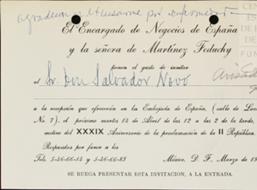 agradecen
por
El Encargado de Negocios de España
y la señora de Martínez Feduchy
tienen el gusto de invitar
al Sr. Don Salvador Novo
a la recepción que ofrecerán en la Embajada de España, (calle de
No 7), el próximo martes 14 de Abril de las 12 a las 2 de la tarde,
motivo del XXXIX Aniversario de la proclamación de la II República.
Respuestas por favor a los
Tels.
México, D. F. Marzo de
SE RUEGA PRESENTAR ESTA INVITACION, A LA ENTRADA.